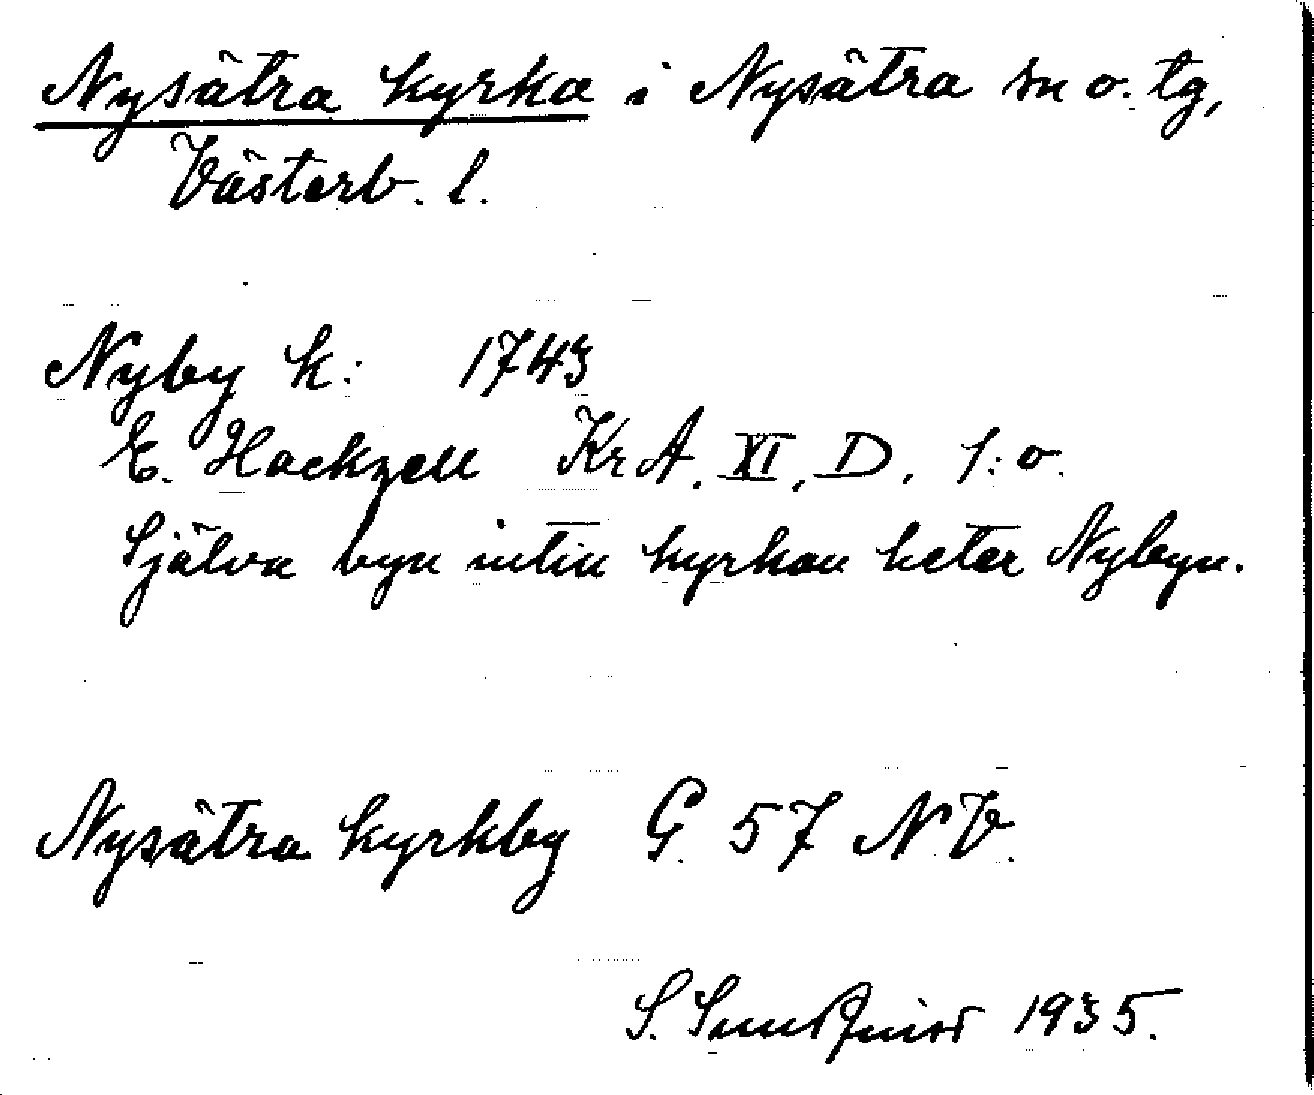 Nysätra kyrka i Nysätra sn o. tg,
Västerb. l.
Nyby k: 1743
E. Hackzell KrA. XI, D. 1:o.
Själva byn intill kyrkan heter Nybyn.
Nysätra kyrkby G. 57 N.V.
S. Sundqvist 1935.